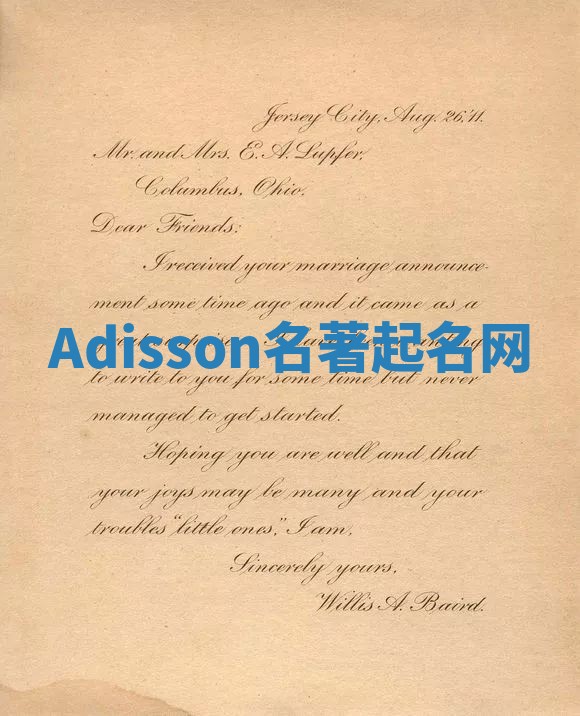 Jersey City, Aug. 26,'11.
Mr. and Mrs. E. A. Lupfer,
Columbus, Ohio.
Dear Friends:
I received your marriage announce-
ment some time ago and it came as a
Adisson名著起名网
to write to you for some time but never
managed to get started.
Hoping you are well and that
your joys may be many and your
troubles "little ones," I am,
Sincerely yours,
Willis A. Baird.